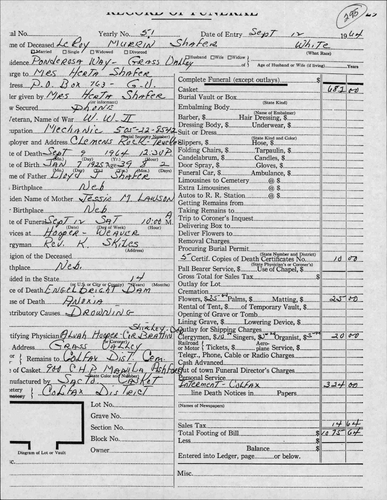 RECORD OF FUNERAL
295
al No. Yearly No. 51 Date of Entry Sept 12 1964
me of Deceased LeRoy Murrin Shafer White
Married Single Widowed Divorced (What Race)
sidence Ponderosa Way - Grass Valley
Husband Wife Widow Age of Husband or Wife (if living)
arge to Mrs Herta Shafer
ress P.O. Box 763 - G.V.
der given by Mrs Herta Shafer
(or informant)
w Secured Phone
Veteran, Name of War W.W. II
cupation Mechanic
ployer and Address Clemens Rock - Trucks
e of Death Sept 9 1964 12:30 P.
te of Birth Jan 7 1925 39 8 2
me of Father Lloyd J Shafer
- Birthplace Neb
iden Name of Mother Jessie M. Lawson
- Birthplace Neb
e of Funeral Sept 12 Sat 10:00 A
vices at Hooper - Weaver
rgyman Rev. K. Skiles
igion of the Deceased
thplace Neb.
ided in the State 14
ce of Death Englebright Dam
use of Death Anoxia
ntributory Causes Drowning
tifying Physician Alvah Hooper - Cor
Address Grass Valley
Remains to Colfax Dist Cem
of Casket
nufactured by Sacto Casket
etery Colfax District
Lot No.
Grave No.
Section No.
Block No.
Owner
Diagram of Lot or Vault
Complete Funeral (except outlays) $
Casket 682 00
Burial Vault or Box
(State Kind)
Embalming Body
Barber, $ Hair Dressing, $
Dressing Body, $ Underwear, $
Suit or Dress
(State Kind and Color)
Slippers, $ Hose, $
Folding Chairs, $ Tarpaulin, $
Candelabrum, $ Candles, $
Door Spray, $ Gloves, $
Funeral Car, $ Ambulance, $
Limousines to Cemetery @ $
Extra Limousines @ $
Autos to R. R. Station @ $
Getting Remains from
Taking Remains to
Trip to Coroner's Inquest
Delivering Box to
Deliver Flowers to
Removal Charges
Procuring Burial Permit
(State Number and District)
5 Certif. Copies of Death Certificates No. 10 00
(State Physician's or Coroner's)
Pall Bearer Service, $ Use of Chapel, $
Gross Total for Sales Tax $
Outlay for Lot
Cremation
Flowers, $ 25 00 Palms, $ Matting, $ 25 00
Rental of Tent, $ of Temporary Vault, $
Opening of Grave or Tomb
Lining Grave, $ Lowering Device, $
Outlay for Shipping Charges
Clergymen, $ 10 Singers, $ 5 Organist, $ 5 20 00
Railroad or Motor Tickets, $ Aero-plane Service, $
Telegr., Phone, Cable or Radio Charges
Cash Advanced
Out of town Funeral Director's Charges
Personal Service
Interment - Colfax 324 00
line Death Notices in Papers
(Names of Newspapers)
Sales Tax 14 64
Total Footing of Bill $ 1075 64
Less
Balance $
Entered into Ledger, page or below.
Misc.